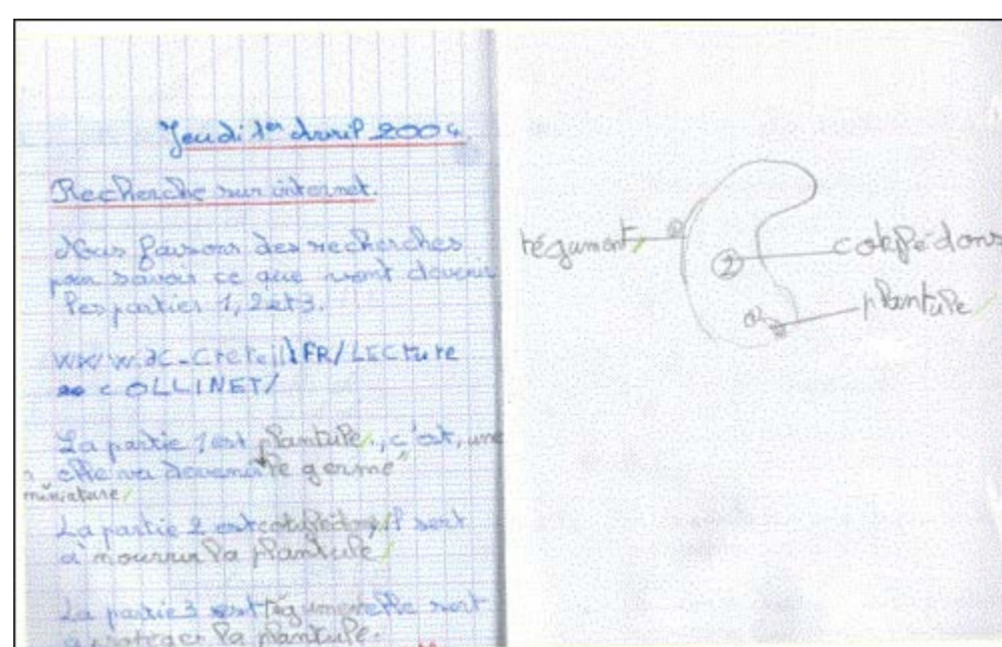 Jeudi 1er Avril 2004.
Recherche sur internet.
Nous faisons des recherches
pour savoir ce que vont devenir
les parties 1, 2 et 3.
WWW.AC-Creteil\FR/LECTure
COLLINET/
La partie 1 est plantule, c'est, une
elle va devenir "le germe"
miniature
La partie 2 est cotylédon, il sert
a nourrir la plantule
La partie 3 est tégument elle sert
a proteger la plantule.
tégument
cotylédons
2
plantule